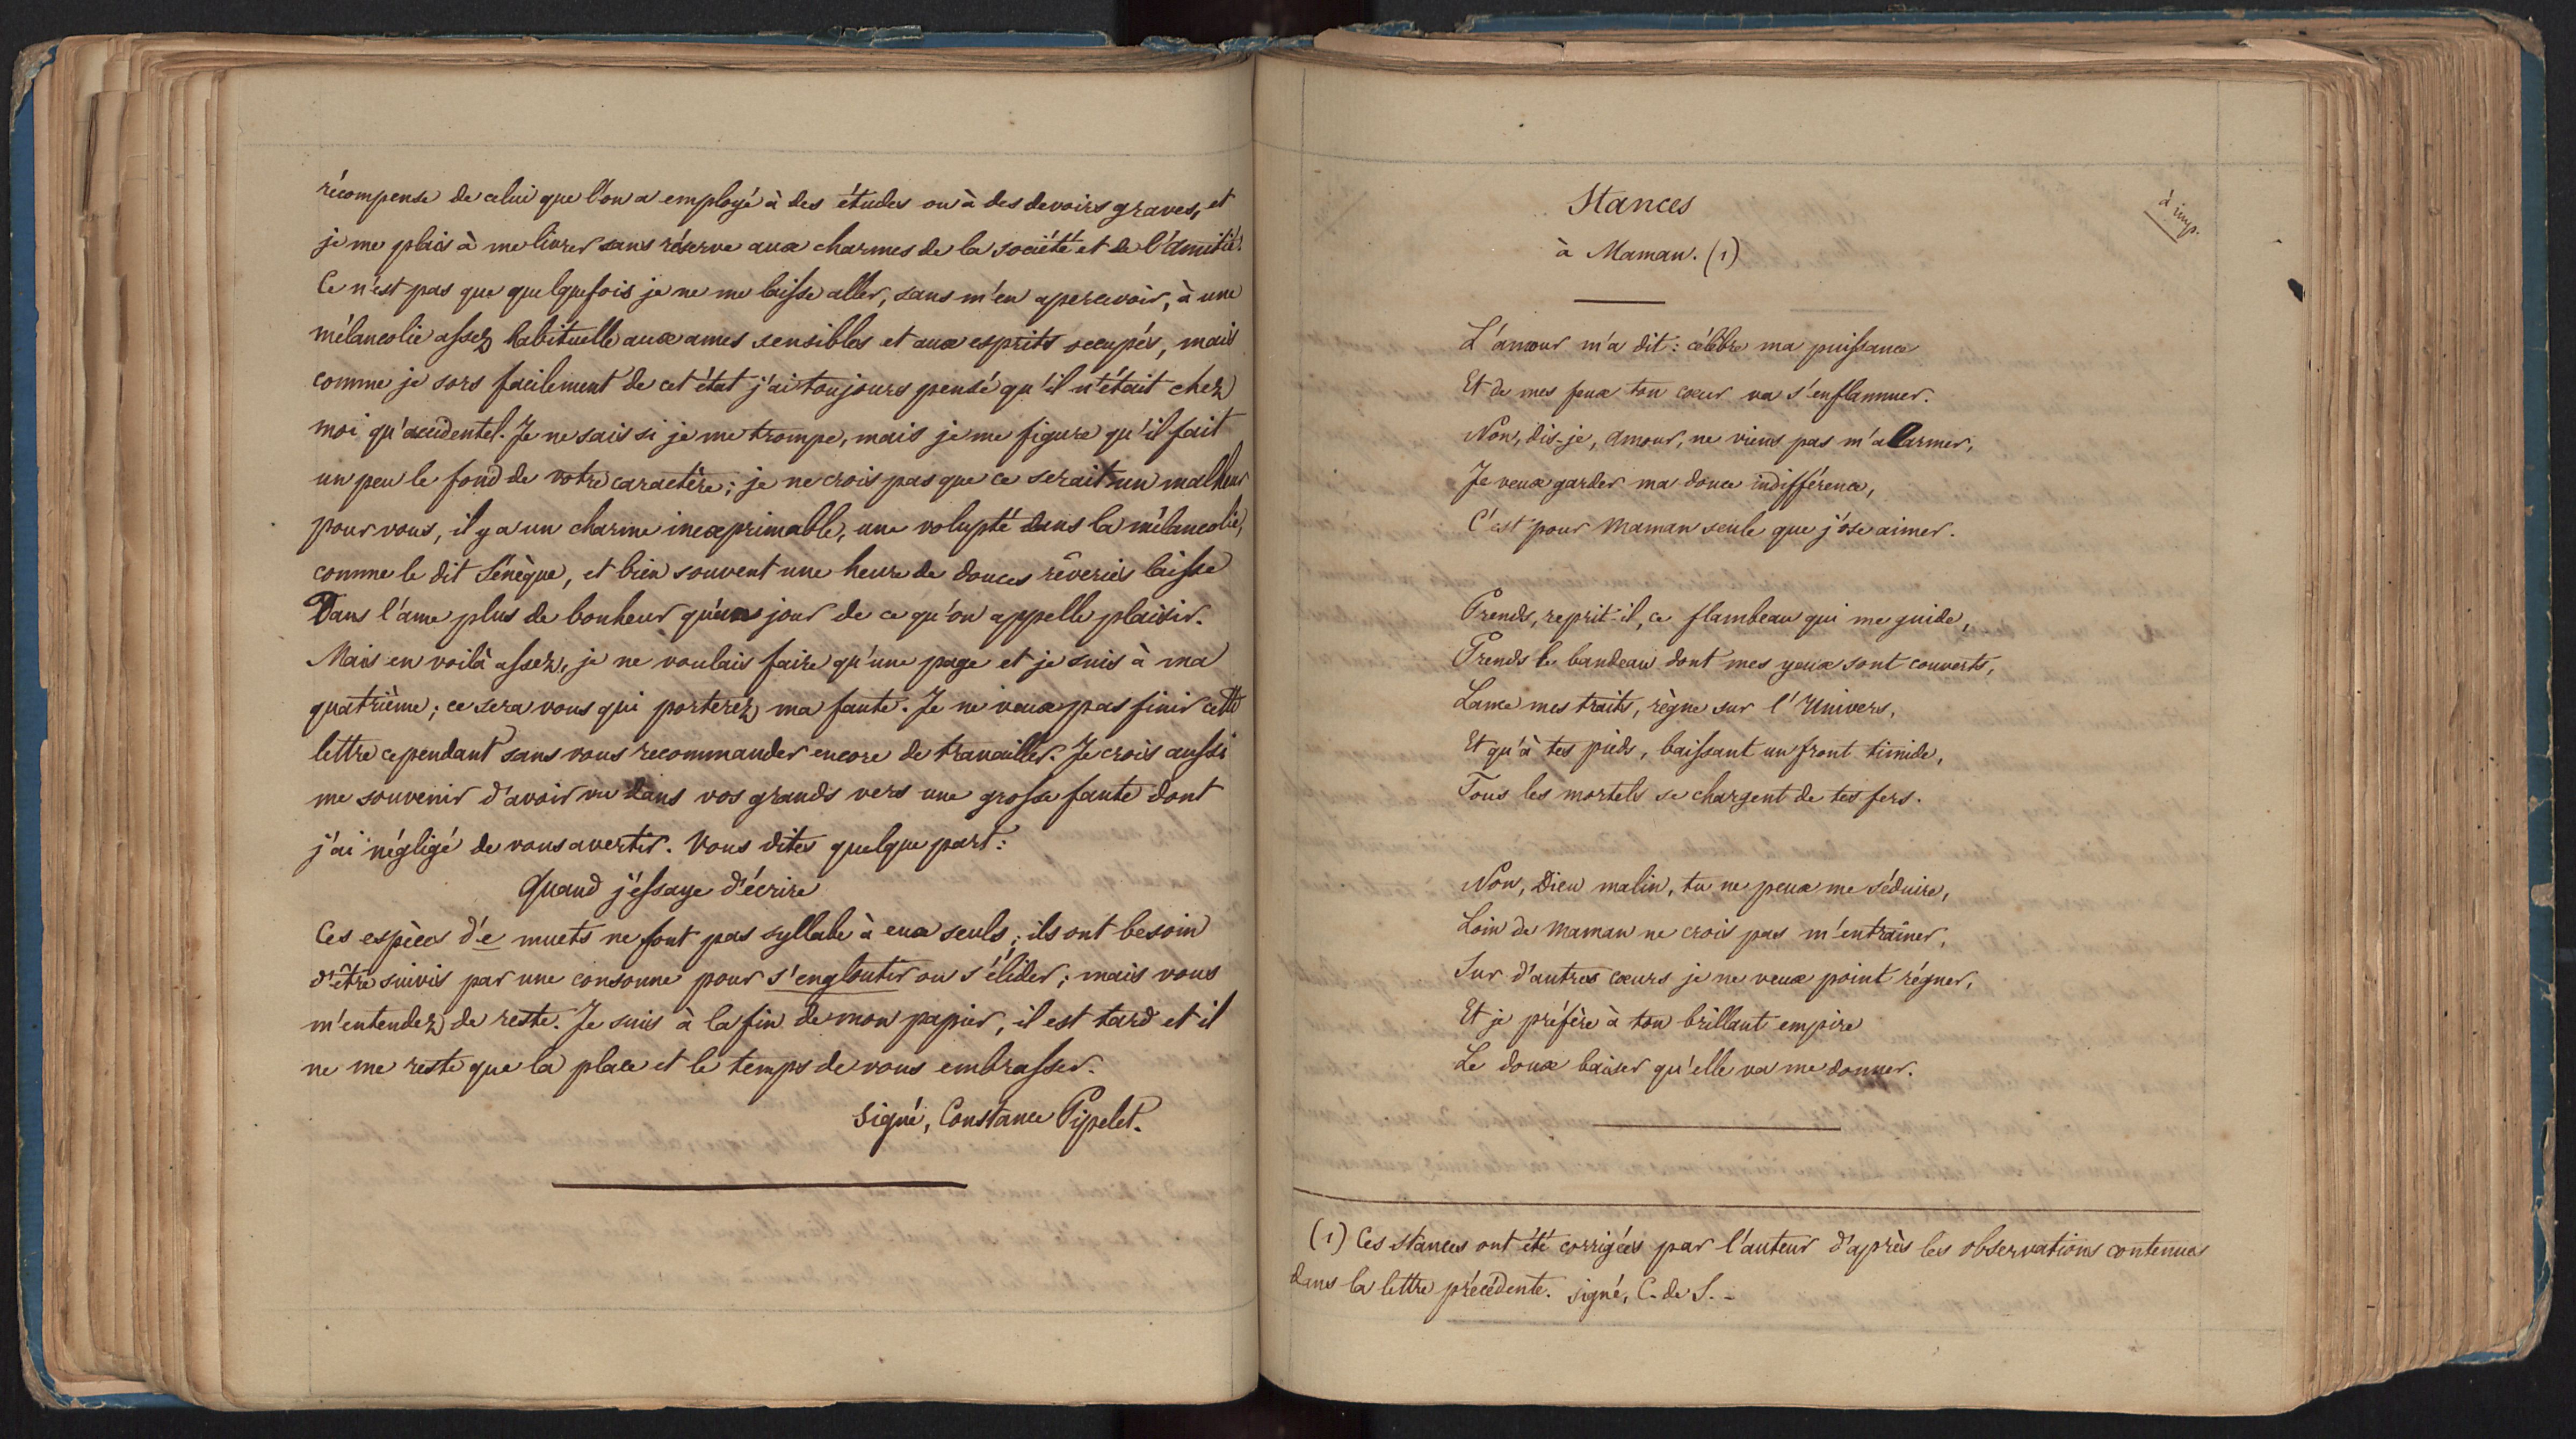 récompense de celui que l'on a employé à des études ou à des devoirs graves, et
je me plais à me livrer sans réserve aux charmes de la société et de l'amitié.
Ce n'est pas que quelquefois je ne me laisse aller, sans m'en apercevoir, à une
mélancolie assez habituelle aux ames sensibles et aux esprits occupés, mais
comme je sors facilement de cet état j'ai toujours pensé qu'il n'était chez
moi qu'accidentel. Je ne sais si je me trompe, mais je me figure qu'il fait
un peu le fond de votre caractère; je ne crois pas que ce serait un malheur
pour vous, il y a un charme inexprimable, une volupté dans la mélancolie,
comme le dit Sénèque, et bien souvent une heure de douces rêveries laisse
Dans l'ame plus de bonheur qu'un jour de ce qu'on appelle plaisir.
Mais en voilà assez, je ne voulais faire qu'une page et je suis à ma
quatrième; ce sera vous qui porterez ma faute. Je ne veux pas finir cette
lettre cependant sans vous recommander encore de travailler. Je crois aussi
me souvenir d'avoir vu dans vos grands vers une grosse faute dont
j'ai négligé de vous avertir. Vous dites quelque part:
Quand j'essaye d'écrire
Ces espèces d'e muets ne font pas syllabe à eux seuls; ils ont besoin
d'être suivis par une consonne pour s'engloutir ou s'élider; mais vous
m'entendez de reste. Je suis à la fin de mon papier, il est tard et il
ne me reste que la place et le temps de vous embrasser.
signé, Constance Pipelet.
Stances
à imp.
à Maman. (1)
L'amour m'a dit: célèbre ma puissance
Et de mes feux ton cœur va s'enflammer.
Non, dis-je, amour, ne viens pas m'alarmer,
Je veux garder ma douce indifférence,
C'est pour Maman seule que j'ose aimer.
Prends, reprit-il, ce flambeau qui me guide,
Prends le bandeau dont mes yeux sont couverts,
Lance mes traits, règne sur l'Univers,
Et qu'à tes pieds, baissant un front timide,
Tous les mortels se chargent de tes fers.
Non, Dieu malin, tu ne peux me séduire,
Loin de Maman ne crois pas m'entraîner,
Sur d'autres cœurs je ne veux point régner,
Et je préfère à ton brillant empire
Le doux baiser qu'elle va me donner.
(1) Ces stances ont été corrigées par l'auteur d'après les observations contenues
dans la lettre précédente. signé, C. de S. -